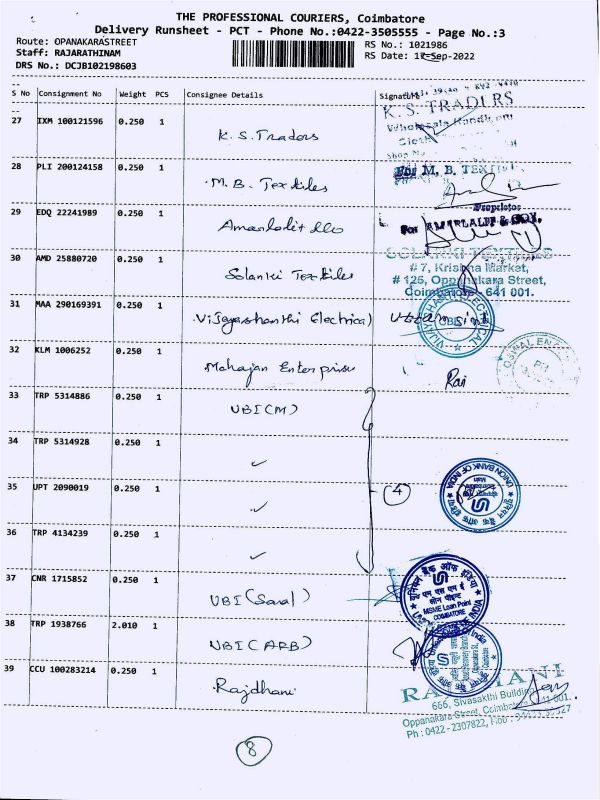 THE PROFESSIONAL COURIERS, Coimbatore
Delivery Runsheet - PCT - Phone No.:0422-3505555 - Page No.:3
Route: OPANAKARASTREET
RS No.: 1021986
Staff: RAJARATHINAM
RS Date: 17-Sep-2022
DRS No.: DCJB102198603
S No Consignment No Weight PCS Consignee Details Signature
27 IXM 100121596 0.250 1 K.S. Traders
K.S. TRADERS
28 PLI 200124158 0.250 1 M.B. Textiles
For M. B. TEXTIL
Proprietor
29 EDQ 22241989 0.250 1
For AMARLALIT & COY.
30 AMD 25880720 0.250 1 Solanki Textiles
SOLANKI TEXTILES
#7, Krishna Market,
#126, Oppanakara Street,
Coimbatore - 641 001.
31 MAA 290169391 0.250 1 Vijayashanthi Electrical
32 KLM 1006252 0.250 1 Mahajan Enterprises
Rai
OSWAL EN
33 TRP 5314886 0.250 1 UBI(M)
34 TRP 5314928 0.250 1 ✓
35 UPT 2090019 0.250 1 ✓
4
UNION BANK OF INDIA
36 TRP 4134239 0.250 1 ✓
37 CNR 1715852 0.250 1 UBI (Saral)
यूनियन बैंक ऑफ इंडिया
एम एस एम ई
लोन पॉइन्ट
MSME Loan Point
COIMBATORE
38 TRP 1938766 2.010 1 UBI (ARB)
39 CCU 100283214 0.250 1 Rajdhani
666, Sivasakthi Building
Oppanakara Street, Coimbatore
Ph : 0422 - 2307822,
8